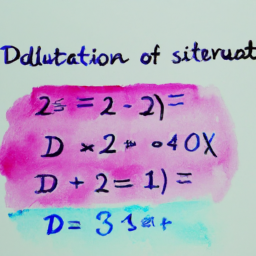 Ddlutation of siteruat
2s = 2 - 2) =
D × 2 = 040X
D + 2 = 1) =
D = 3 1